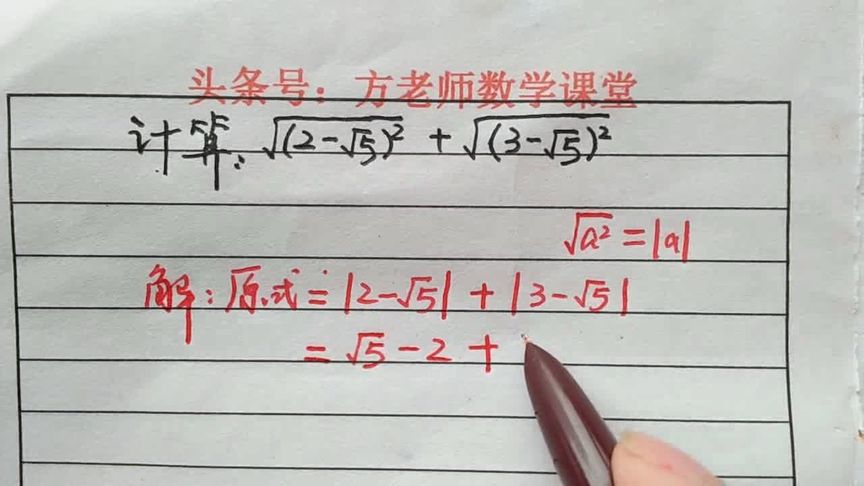 头条号：方老师数学课堂
计算：√(2-√5)² + √(3-√5)²
√a² = |a|
解：原式 = |2-√5| + |3-√5|
= √5 - 2 +